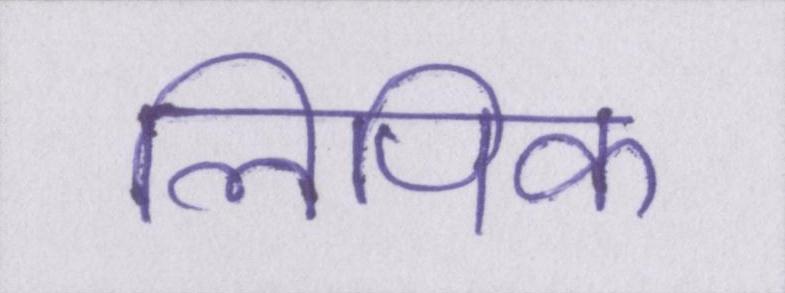 लिपिक